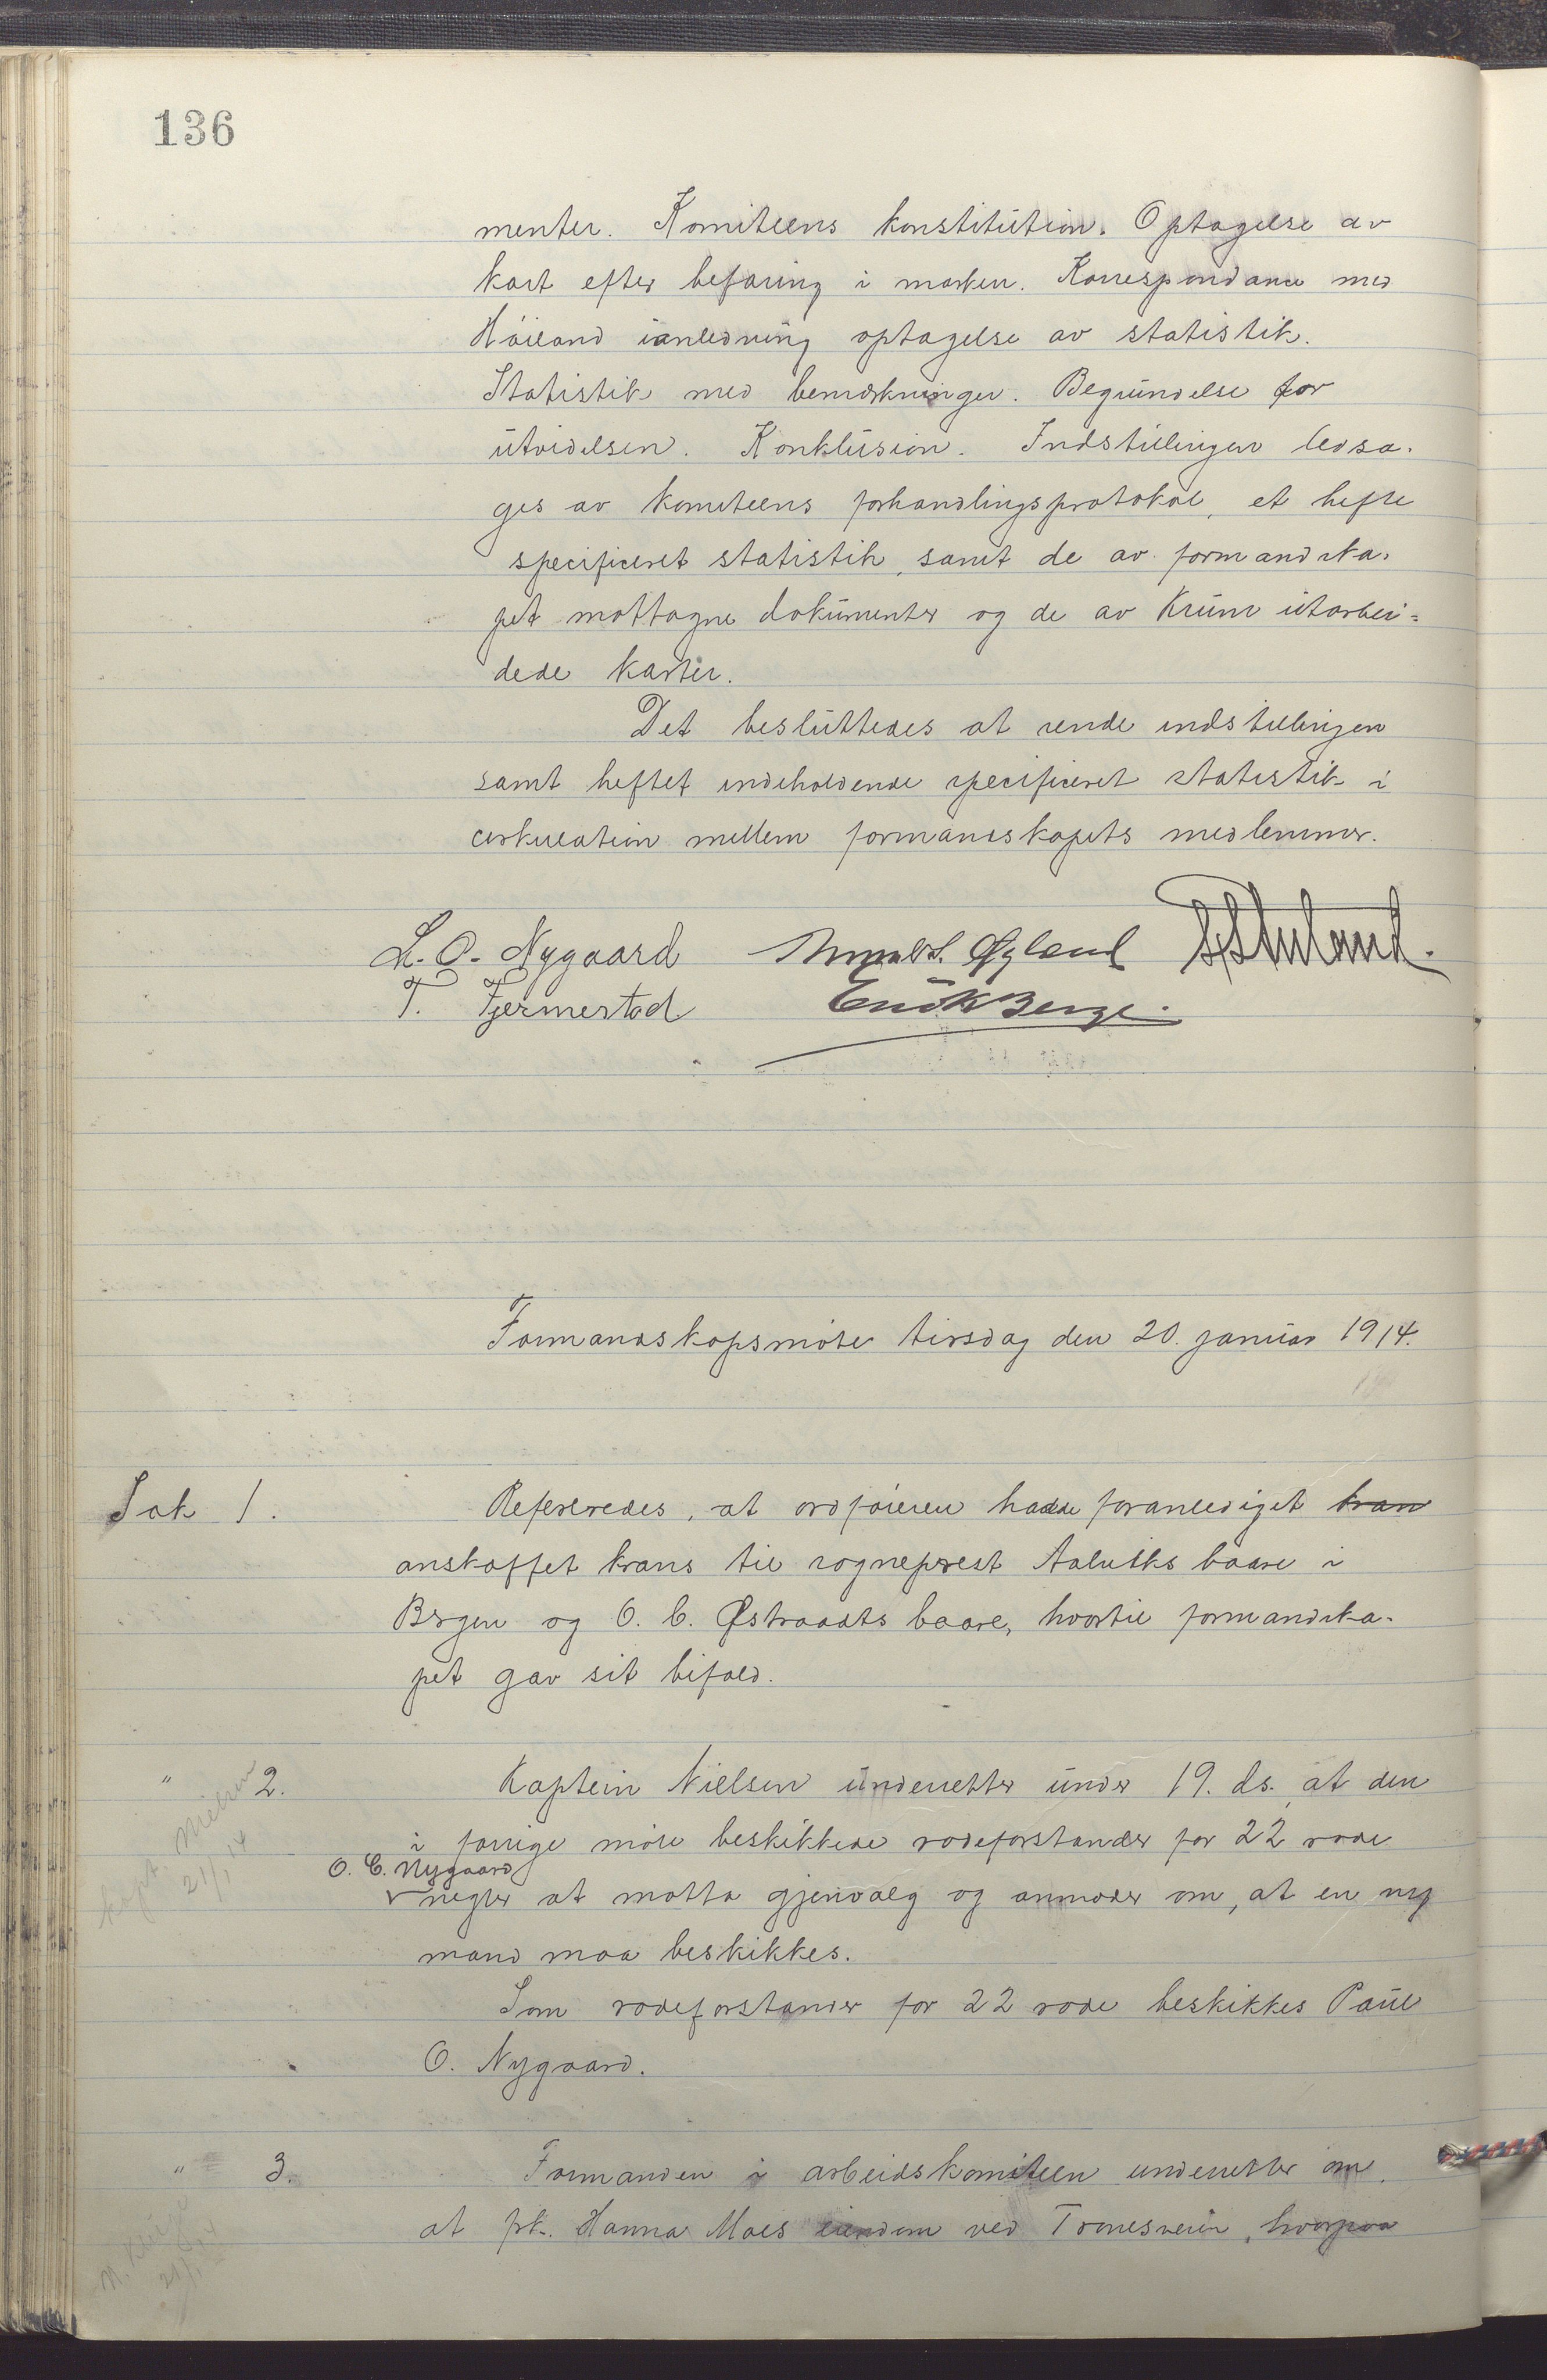 136
menter. Komiteens konstitution. Optagelse av
kart efter befaring i marken. Korrespondance med
Höiland ianledning optagelse av statistik.
Statistik med bemerkninger. Begrundelse for
utvidelsen. Konklusion. Indstillingen ledsa-
ges av komiteens forhandlingsprotokol, et hefte
specificeret statistik, samt de av formandska-
pet mottagne dokumenter og de av Krum utarbei=
dede karter.
Det besluttedes at sende indstillingen
samt heftet indeholdende specificeret statistik i
cirkulation mellem formandskapets medlemmer.
L. O. Nygaard Øglend
T. Fjermestad Erik Berge.
Formandskapsmöte tirsdag den 20. januar 1914.
Sak 1. Refereredes, at ordföreren hadde foranlediget kran
anskaffet krans til sogneprest Aalviks baare i
Bergen og O. C. Østraadts baare, hvortil formandska-
pet gav sit bifald.
" 2. Kaptein Nielsen underretter under 19. ds. at den
i forrige möte beskikkede rodeforstander for 22 rode
O. C. Nygaard
negter at motta gjenvalg og anmoder om, at en ny
mand maa beskikkes.
Kapt. Nielsen
21/1 14
Som rodeforstander for 22 rode beskikkes Paul
O. Nygaard.
" 3. Formanden i arbeidskomiteen underretter om,
at frk. Hanna Maes eiendom ved Tronesveien, hvorpaa
21/1 14